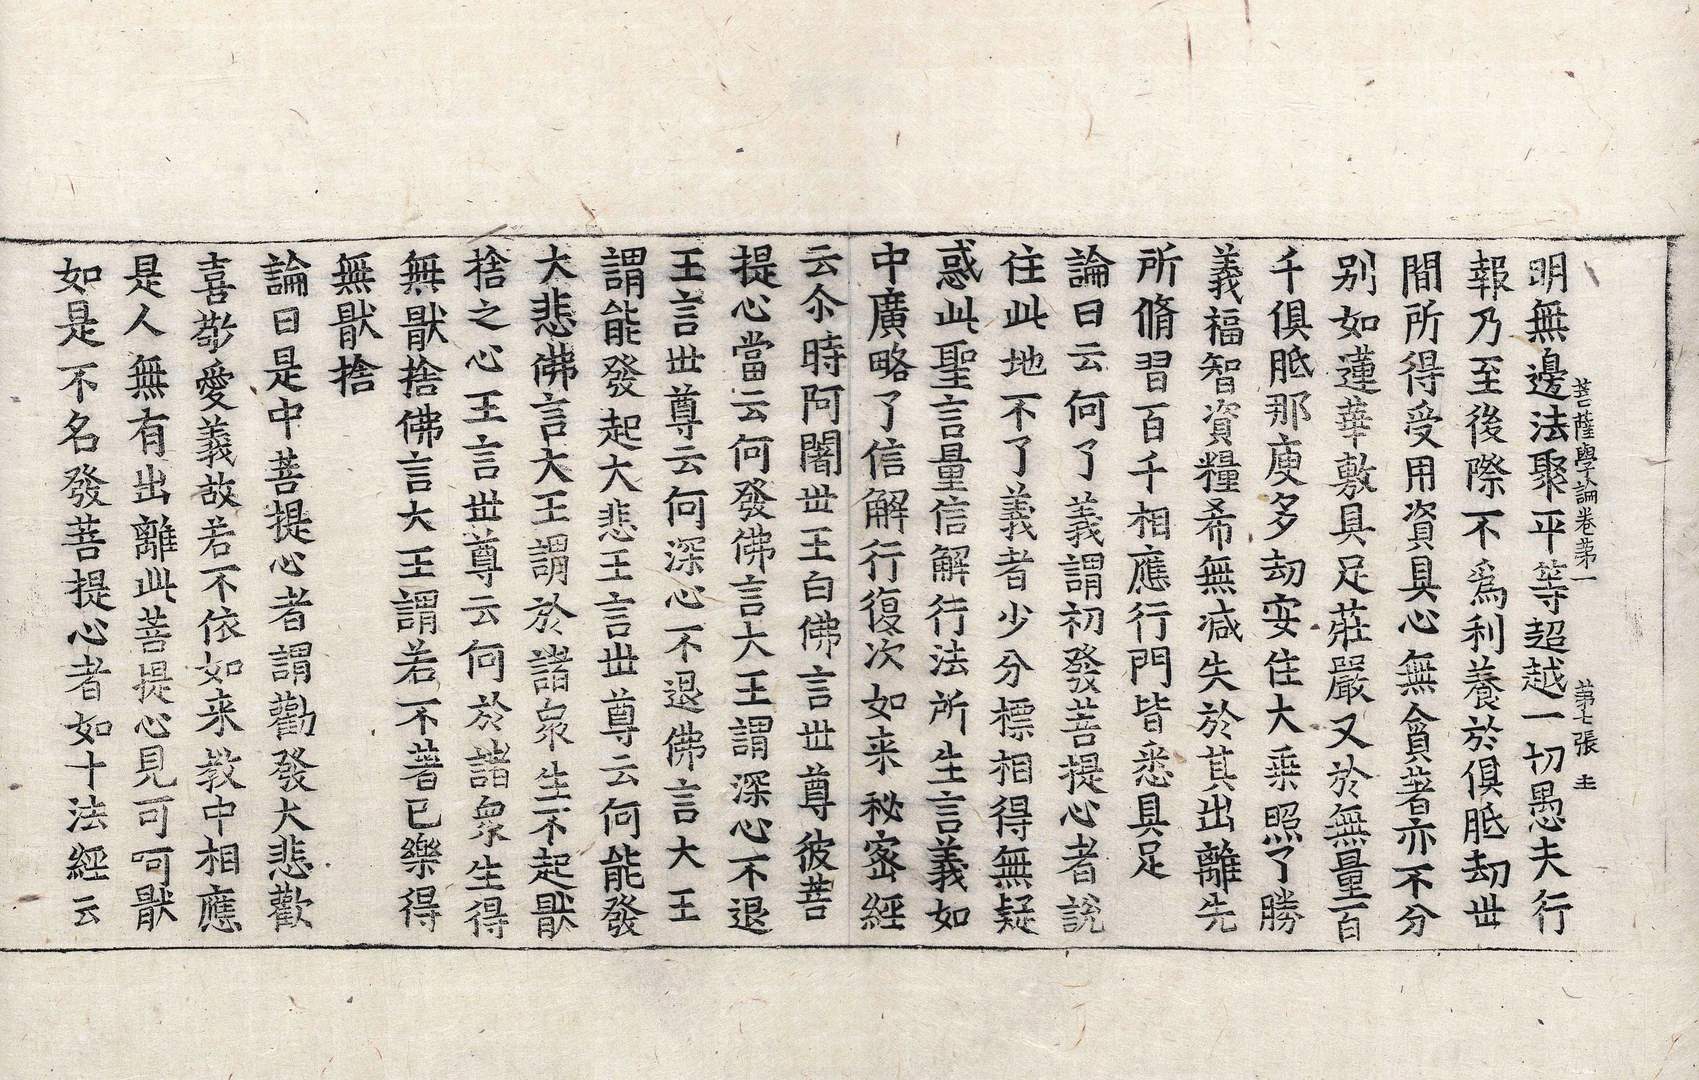 菩薩學論卷苐一　苐七張　圭
明無邊法聚平等超越一切愚夫行
報乃至後際不爲利養於俱胝劫丗
間所得受用資具心無貪著亦不分
别如蓮華敷具足莊嚴又於無量百
千俱胝那庾多劫安住大乘照了勝
義福智資糧希無减失於其出離先
所脩習百千相應行門皆悉具足
論曰云何了義謂初發菩提心者說
住此地不了義者少分標相得無疑
惑此聖言量信解行法所生言義如
中廣略了信解行復次如来秘密經
云尒時阿闍丗王白佛言丗尊彼菩
提心當云何發佛言大王謂深心不退
王言丗尊云何深心不退佛言大王
謂能發起大悲王言丗尊云何能發
大悲佛言大王謂於諸衆生不起猒
捨之心王言丗尊云何於諸衆生得
無猒捨佛言大王謂若不著已樂得
無猒捨
論曰是中菩提心者謂勸發大悲歡
喜敬愛義故若不依如来教中相應
是人無有出離此菩提心見可呵猒
如是不名發菩提心者如十法經云